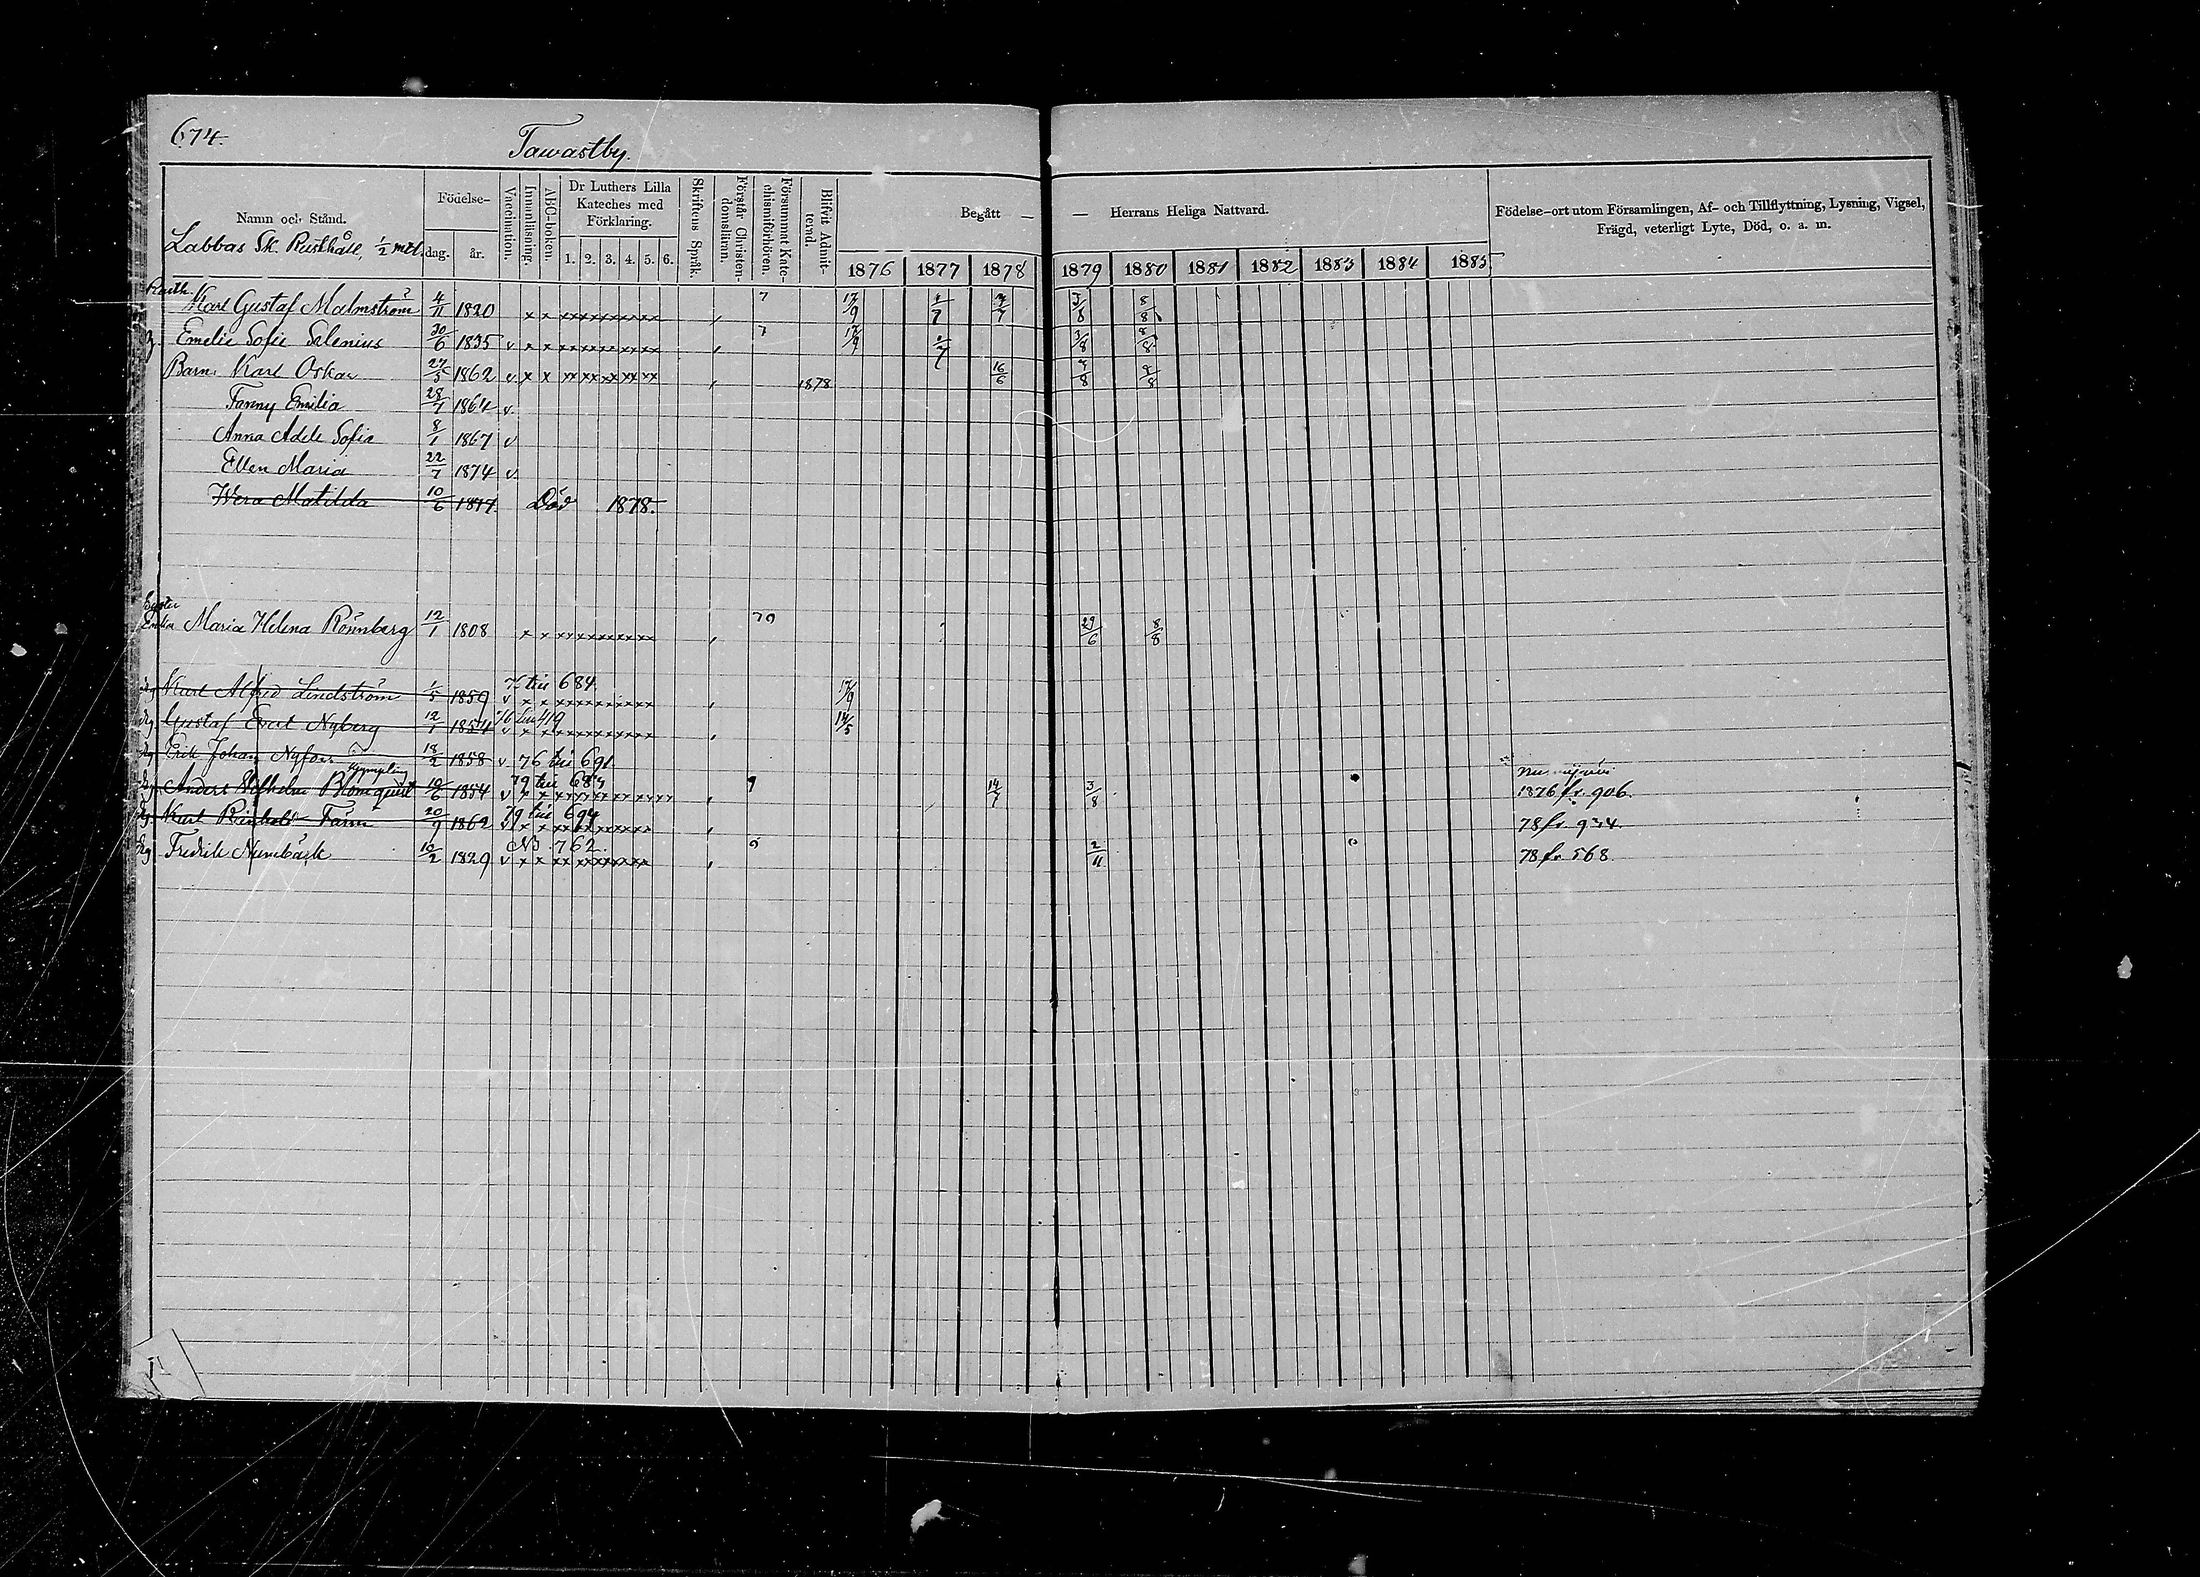 674.
Tawastby.
Namn och Stånd.
Labbas Sk. Rusthåll, 1/2 mtl.
Födelse-
dag. år.
Vaccination.
Innanläsning.
ABC-boken.
Dr Luthers Lilla
Kateches med
Förklaring.
1. 2. 3. 4. 5. 6.
Skriftens Språk.
Förstår Christen-
domslärnn.
Försummat Kate-
chismiförhören.
Blifvit Admit-
terad.
Begått — — Herrans Heliga Nattvard.
1876 1877 1878 1879 1880 1881 1882 1883 1884 1885
Födelse-ort utom Församlingen, Af- och Tillflyttning, Lysning, Vigsel,
Frägd, veterligt Lyte, Död, o. a. m.
Rusth.
Karl Gustaf Malmström 4/11 1820 x x xxxxxxxxxx , 7 17/9 1/7 7/7 3/8 8/8
Emelie Sofie Selenius 30/6 1835 v x x xxxxxxxxxx , 7 17/9 1/7 3/8 8/8
Barn. Karl Oskar 27/5 1862 v x x xxxxxxxxxx , 1878 16/6 8/8
Fanny Emilia 28/7 1864 v
Anna Adele Sofia 8/1 1867 v
Ellen Maria 22/7 1874 v
Wera Matilda 10/6 1877 Död 1878.
Enka Maria Helena Rönnberg 12/1 1808 x x xxxxxxxxxx , 79 29/6 8/8
Dg Karl Alfred Lindström 1/5 1859 till 684 v x x xxxxxxxxxx , 17/9
Dg Gustaf Evert Nyberg 12/1 1854 76 till 419 v x x xxxxxxxxxx , 14/5
Dg Erik Johan 18/2 1858 v 76 till 691
Dg Anders Wilhelm Blomquist 10/6 1854 79 till v x x xxxxxxxxxxxx , 9 14/7 3/8 1876 fr. 906.
Dg Karl Reinhold Farm 20/9 1862 79 till 694 v x x xxxxxxxxxx , 78 fr.
Dg Fredrik 10/2 1829 NB. 762. v x x xxxxxxxxxx , 2/11 78 fr. 568.